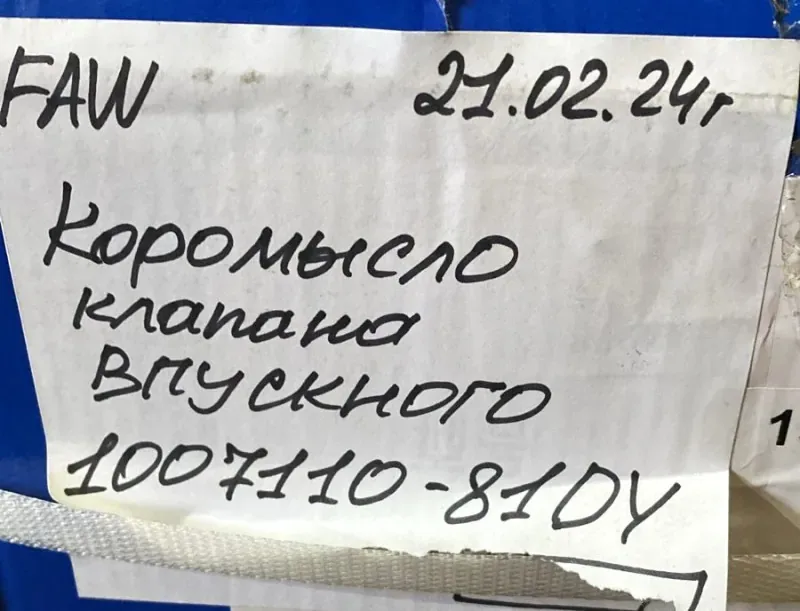 FAW 21.02.24г
Коромысло
клапана
впускного
1007110-81DY
1